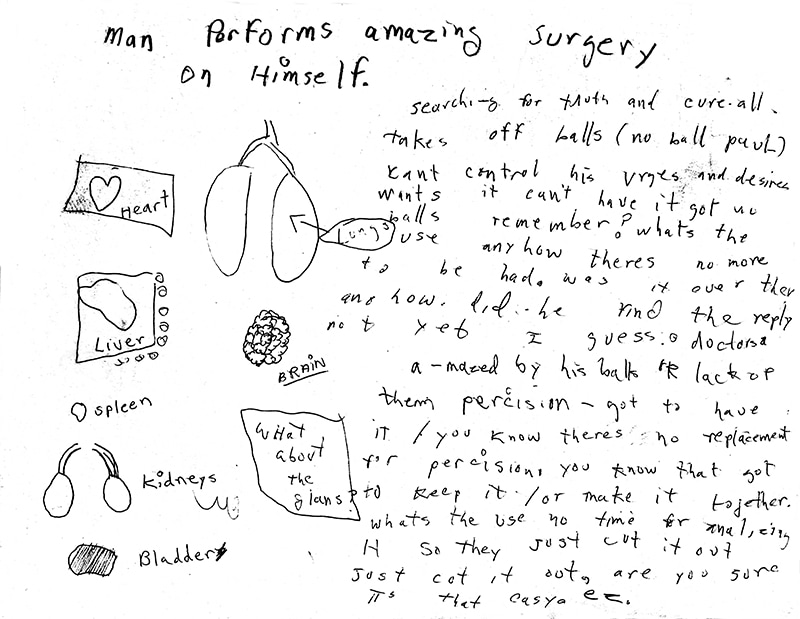 man Performs amazing surgery
on Himself.
searching for truth and cure-all.
takes off balls (no ball paul)
Kant control his urges and desires
wants it can't have it got no
balls remember? whats the
use anyhow theres no more
to be had. was it over then
and how. did he find the reply
not yet I guess. doctors
a-mazed by his balls lack of
them percision - got to have
it / you know theres no replacement
for percision, you know that got
to keep it / or make it together.
whats the use no time for analizing
it so they just cut it out
just cut it out, are you sure
its that easy etc.
Heart
Lungs
Liver
BRAIN
spleen
Kidneys
Bladder
What
about
the
glans?